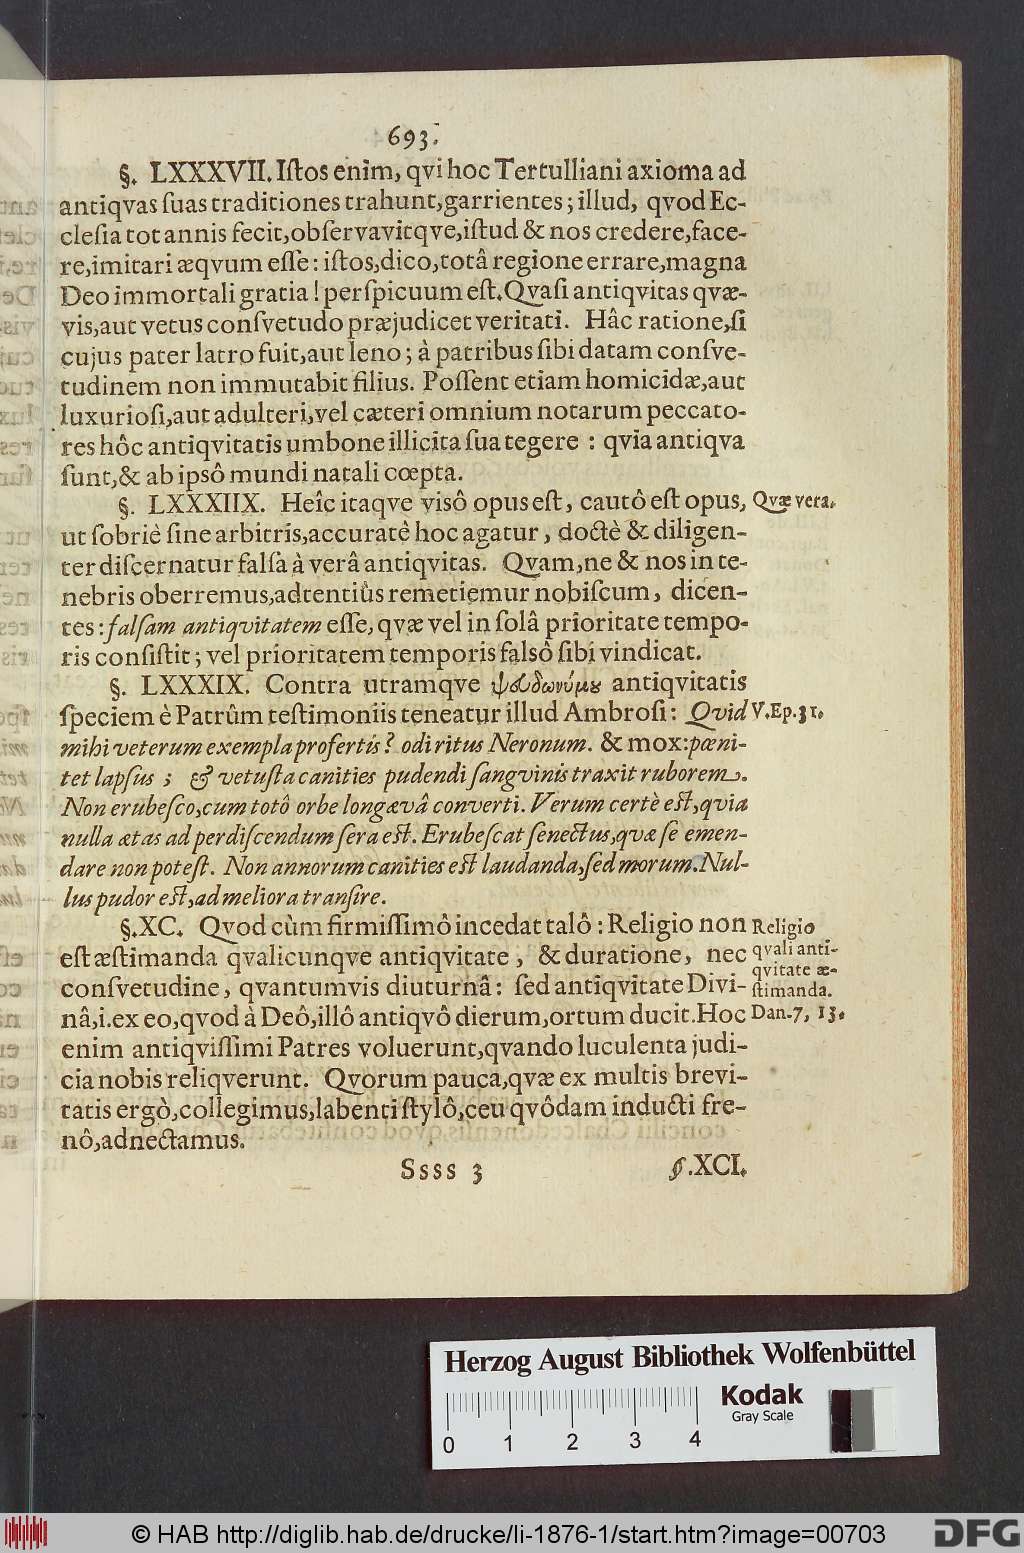 693.
§. LXXXVII. Iſtos enim, qvi hoc Tertulliani axioma ad
antiqvas ſuas traditiones trahunt, garrientes; illud, qvod Ec-
cleſia tot annis fecit, obſervavitqve, iſtud & nos credere, face-
re, imitari æqvum eſſe: iſtos, dico, totâ regione errare, magna
Deo immortali gratia! perſpicuum eſt. Qvaſi antiqvitas qvæ-
vis, aut vetus conſvetudo præjudicet veritati. Hâc ratione, ſi
cujus pater latro fuit, aut leno; à patribus ſibi datam conſve-
tudinem non immutabit filius. Poſſent etiam homicidæ, aut
luxurioſi, aut adulteri, vel cæteri omnium notarum peccato-
res hôc antiqvitatis umbone illicita ſua tegere: qvia antiqva
ſunt, & ab ipsô mundi natali cœpta.
§. LXXXIIX. Heîc itaqve visô opus eſt, cautô eſt opus, Qvæ vera.
ut ſobriè ſine arbitris, accuratè hoc agatur, doctè & diligen-
ter diſcernatur falſa à verâ antiqvitas. Qvam, ne & nos in te-
nebris oberremus, adtentiùs remetiemur nobiſcum, dicen-
tes: falſam antiqvitatem eſſe, qvæ vel in ſolâ prioritate tempo-
ris conſiſtit; vel prioritatem temporis falsô ſibi vindicat.
§. LXXXIX. Contra utramqve ψευδωνύμȣ antiqvitatis
ſpeciem è Patrûm teſtimoniis teneatur illud Ambroſi: Qvid V. Ep. 31.
mihi veterum exempla profertis? odi ritus Neronum. & mox: pœni-
tet lapſus; & vetuſta canities pudendi ſangvinis traxit ruborem.
Non erubeſco, cum totô orbe longævâ converti. Verum certè eſt, qvia
nulla ætas ad perdiſcendum ſera eſt. Erubeſcat ſenectus, qvæ ſe emen-
dare non poteſt. Non annorum canities eſt laudanda, ſed morum. Nul-
lus pudor eſt, ad meliora tranſire.
§. XC. Qvod cùm firmiſſimô incedat talô: Religio non Religio
eſt æſtimanda qvalicunqve antiqvitate, & duratione, nec qvali anti-
qvitate æ-
conſvetudine, qvantumvis diuturnâ: ſed antiqvitate Divi- ſtimanda.
nâ, i. ex eo, qvod à Deô, illô antiqvô dierum, ortum ducit. Hoc Dan. 7, 13.
enim antiqviſſimi Patres voluerunt, qvando luculenta judi-
cia nobis reliqverunt. Qvorum pauca, qvæ ex multis brevi-
tatis ergò, collegimus, labenti ſtylô, ceu qvôdam inducti fre-
nô, adnectamus.
Ssss 3 §. XCI.
Herzog August Bibliothek Wolfenbüttel
Kodak
Gray Scale
0 1 2 3 4
© HAB http://diglib.hab.de/drucke/li-1876-1/start.htm?image=00703 DFG